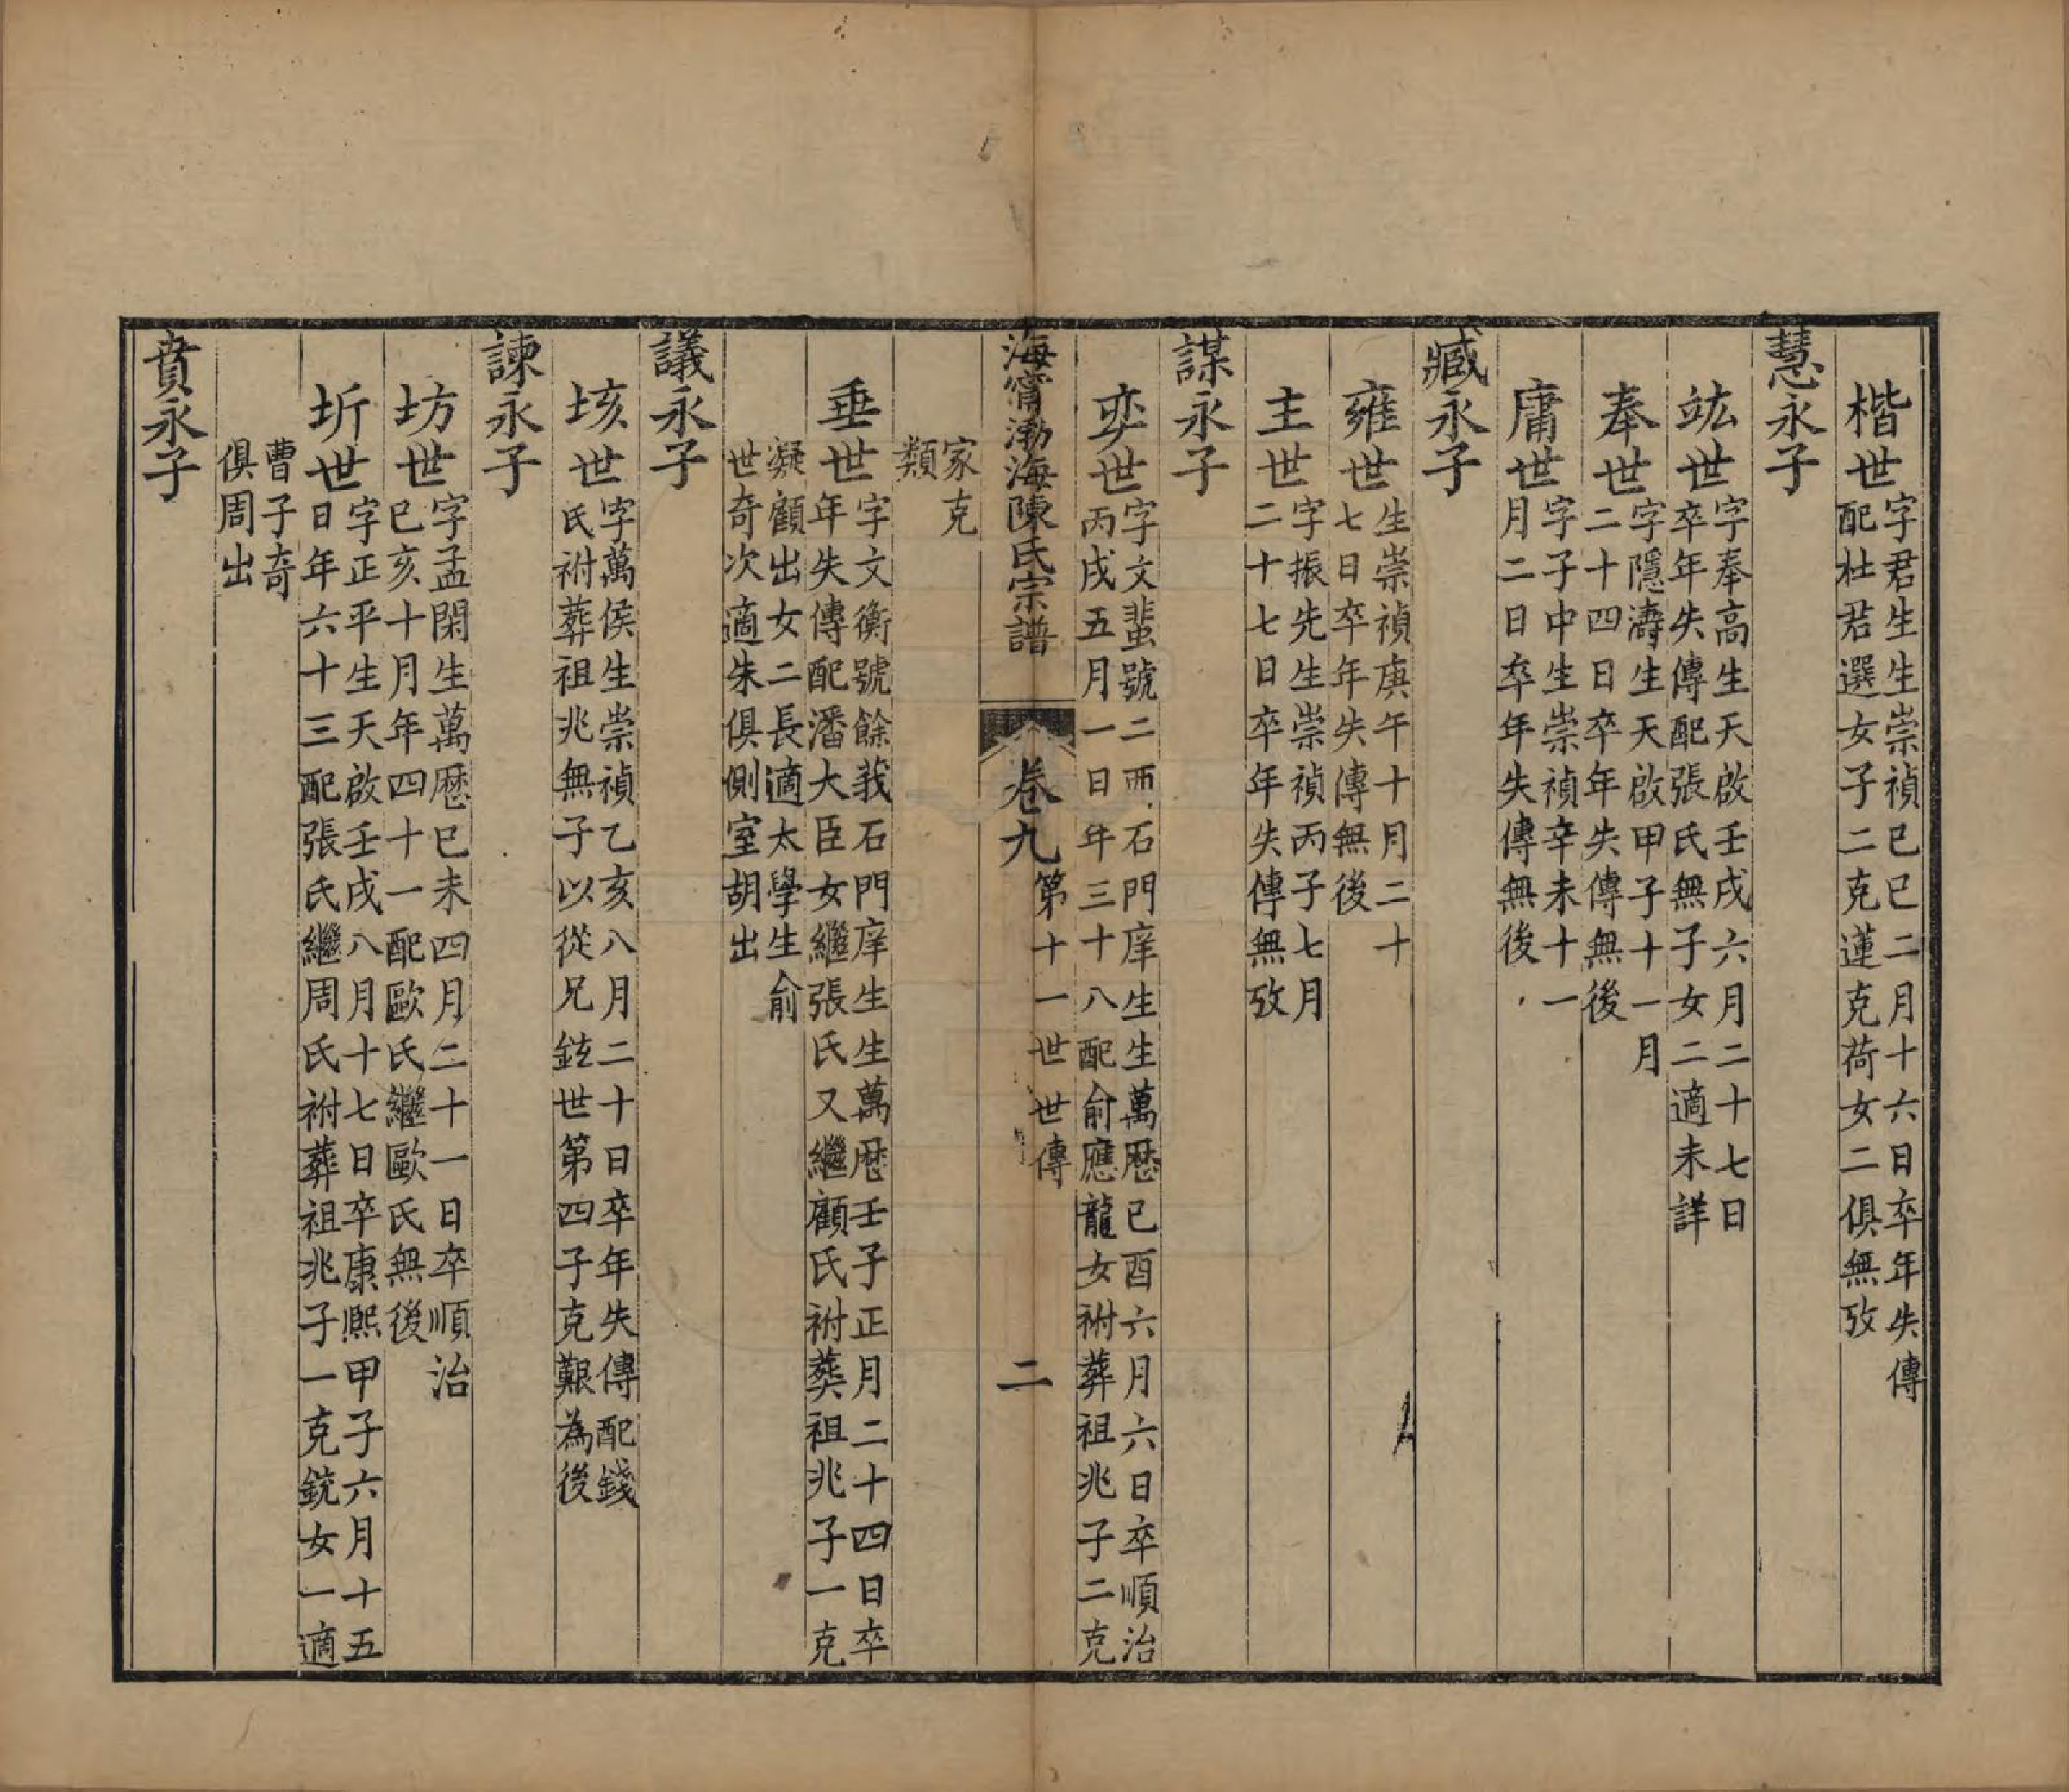 楷世
字君生生崇禎己巳二月十六日卒年失傳
配杜若選女子二克蓮克荷女二俱無攷
慧永子
竑世
字奉高生天啟壬戌六月二十七日
卒年失傳配張氏無子女二適未詳
奉世
字隱濤生天啟甲子十一月
二十四日卒年失傳無後
庸世
字子中生崇禎辛未十一
月二日卒年失傳無後
臧永子
雍世
生崇禎庚午十月二十
七日卒年失傳無後
主世
字振先生崇禎丙子七月
二十七日卒年失傳無攷
謀永子
奕世
字文蜚號二西石門庠生生萬歷己酉六月六日卒順治
丙戌五月一日年三十八配俞應龍女祔葬祖兆子二克
海甯渤海陳氏宗譜
卷九
第十一世世傳
二
家克
類
垂世
字文衡號餘莪石門庠生生萬歷壬子正月二十四日卒
年失傳配潘大臣女繼張氏又繼顧氏祔葬祖兆子一克
凝顧出女二長適太學生俞
世奇次適朱俱側室胡出
議永子
垓世
字萬侯生崇禎乙亥八月二十日卒年失傳配錢
氏祔葬祖兆無子以從兄鉉世第四子克艱為後
諫永子
坊世
字孟閑生萬歷己未四月二十一日卒順治
己亥十月年四十一配歐氏繼歐氏無後
圻世
字正平生天啟壬戌八月十七日卒康熙甲子六月十五
日年六十三配張氏繼周氏祔葬祖兆子一克銃女一適
曹子奇
俱周出
賁永子